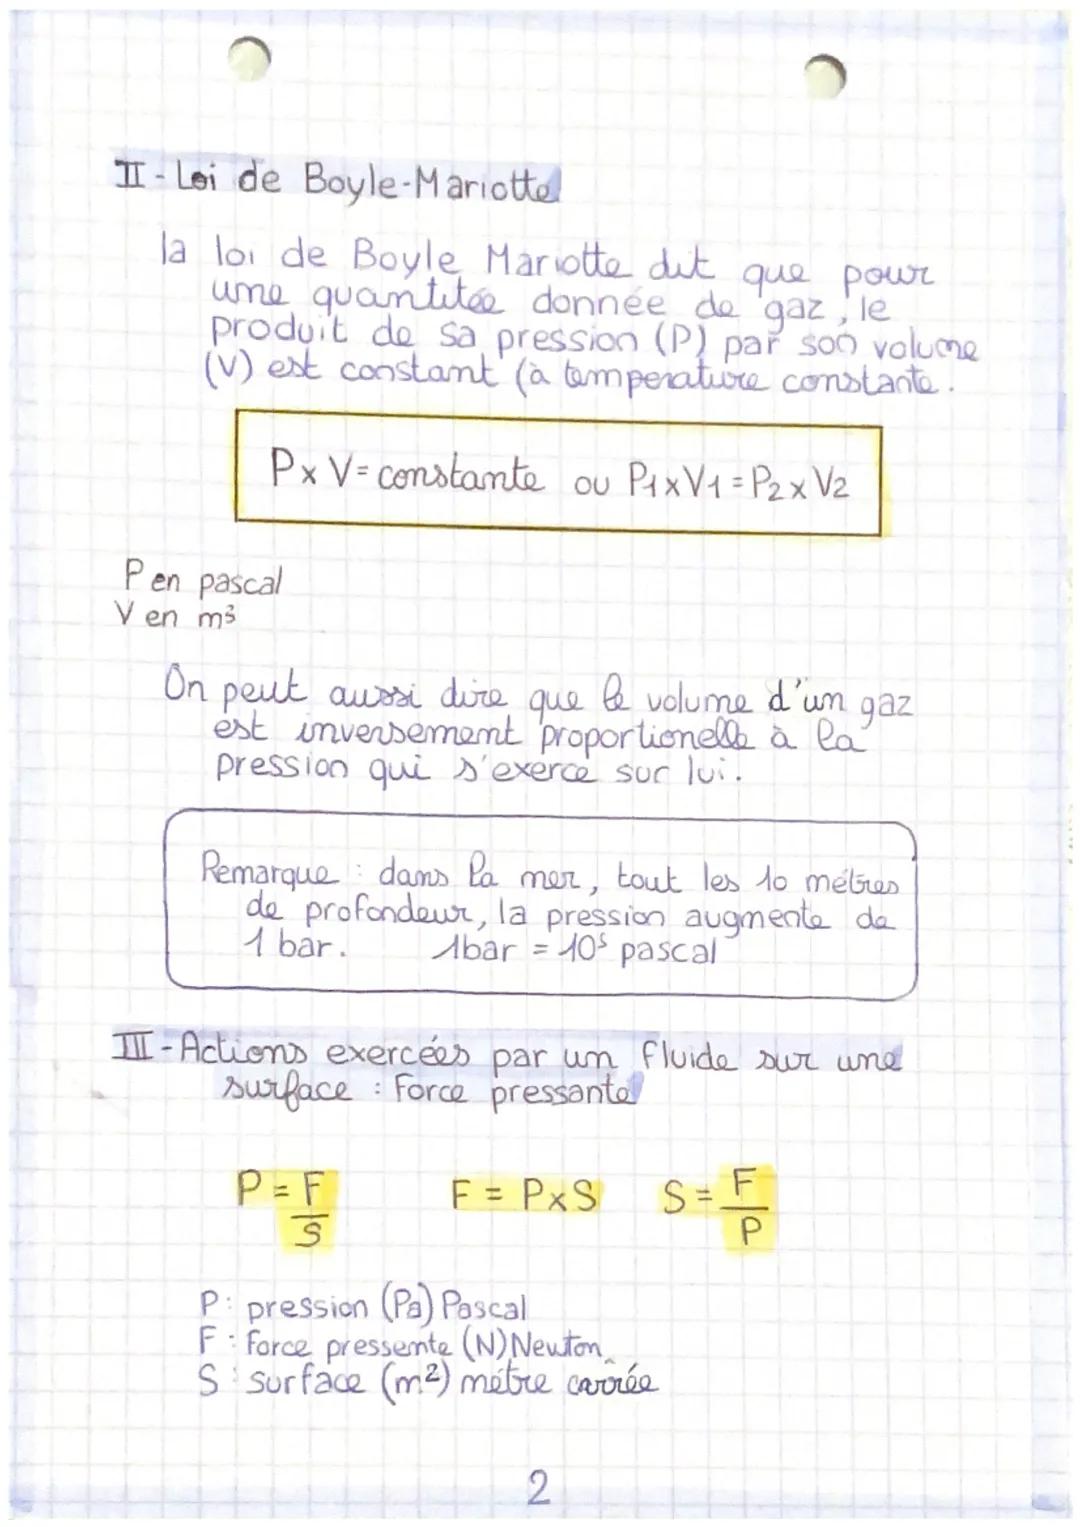 II - Loi de Boyle-Mariotte
la loi de Boyle Mariotte dit que pour
une quantitée donnée de gaz, le
produit de sa pression (P) par son volume
(V) est constant (à température constante.
P x V = constante ou P1 x V1 = P2 x V2
P en pascal
V en m³
On peut aussi dire que le volume d'un gaz
est inversement proportionelle à la
pression qui s'exerce sur lui.
Remarque : dans la mer, tout les 10 métres
de profondeur, la pression augmente de
1 bar. 1bar = 10⁵ pascal
III - Actions exercées par un fluide sur une
surface : Force pressante
P = F/S F = P x S S = F/P
P : pression (Pa) Pascal
F : force pressente (N) Newton
S : surface (m²) métre carrée
2